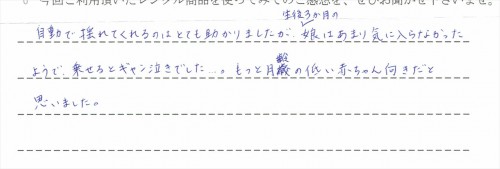 今回ご利用頂いたレンタル商品を使ってみてのご感想を、ぜひお聞かせ下さいませ。
生後3か月の
自動で揺れてくれるのはとても助かりましたが、娘はあまり気に入らなかった
ようで、乗せるとギャン泣きでした…。もっと月齢の低い赤ちゃん向きだと
思いました。